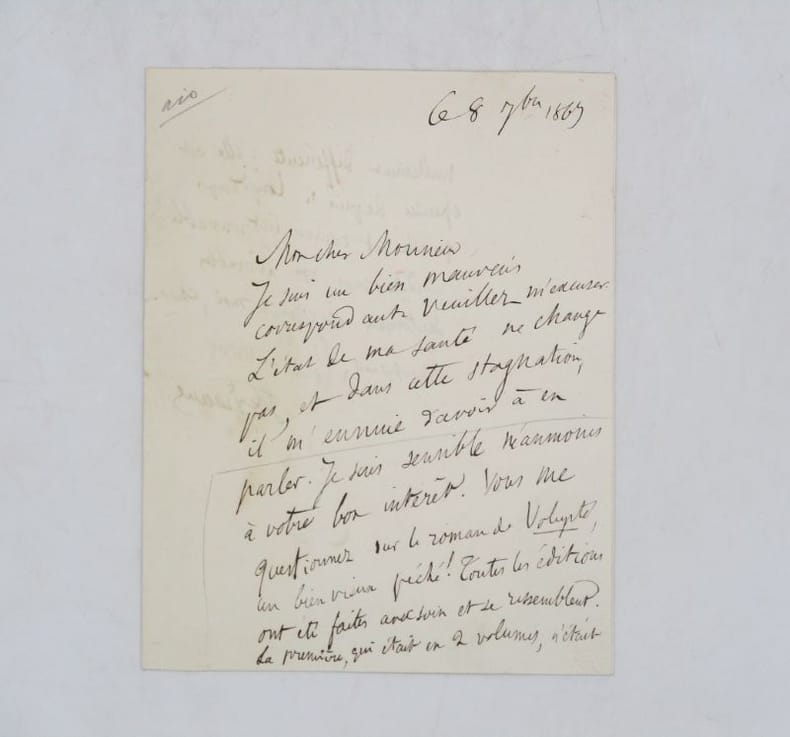 Ce 8 7bre 1867
Mon cher Monsieur
Je suis un bien mauvais
correspondant veuillez m'excuser.
L'état de ma santé ne change
pas, et dans cette stagnation,
il m'ennuie d'avoir à en
parler. Je suis sensible néanmoins
à votre bon intérêt. Vous me
questionnez sur le roman de Volupté,
un bien vieux péché! Toutes les éditions
ont été faites avec soin et se ressemblent.
La première, qui était en 2 volumes, n'était